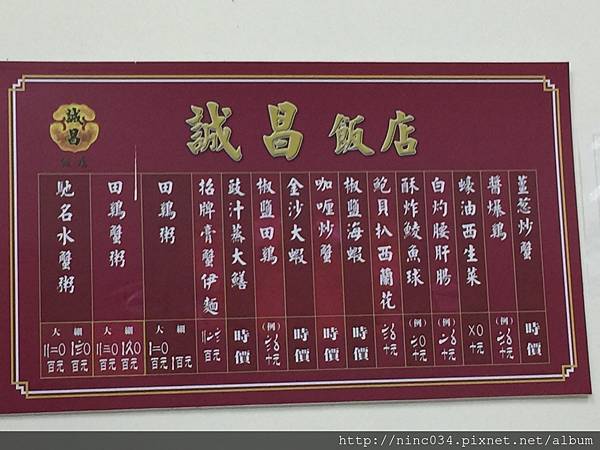 誠昌飯店
誠昌
飯店
薑葱炒蟹
時價
醬爆鷄
(例)
十元
蠔油西生菜
十元
白灼腰肝腸
(例)
十元
酥炸鯪魚球
(例)
十元
鮑貝扒西蘭花
十元
椒鹽海蝦
時價
咖喱炒蟹
時價
金沙大蝦
時價
椒鹽田鷄
(例)
十元
豉汁蒸大鱔
時價
招牌膏蟹伊麵
百元
田鷄粥
細
百元
大
百元
田鷄蟹粥
細
百元
大
百元
馳名水蟹粥
細
百元
大
百元
http://ninc034.pixnet.net/album